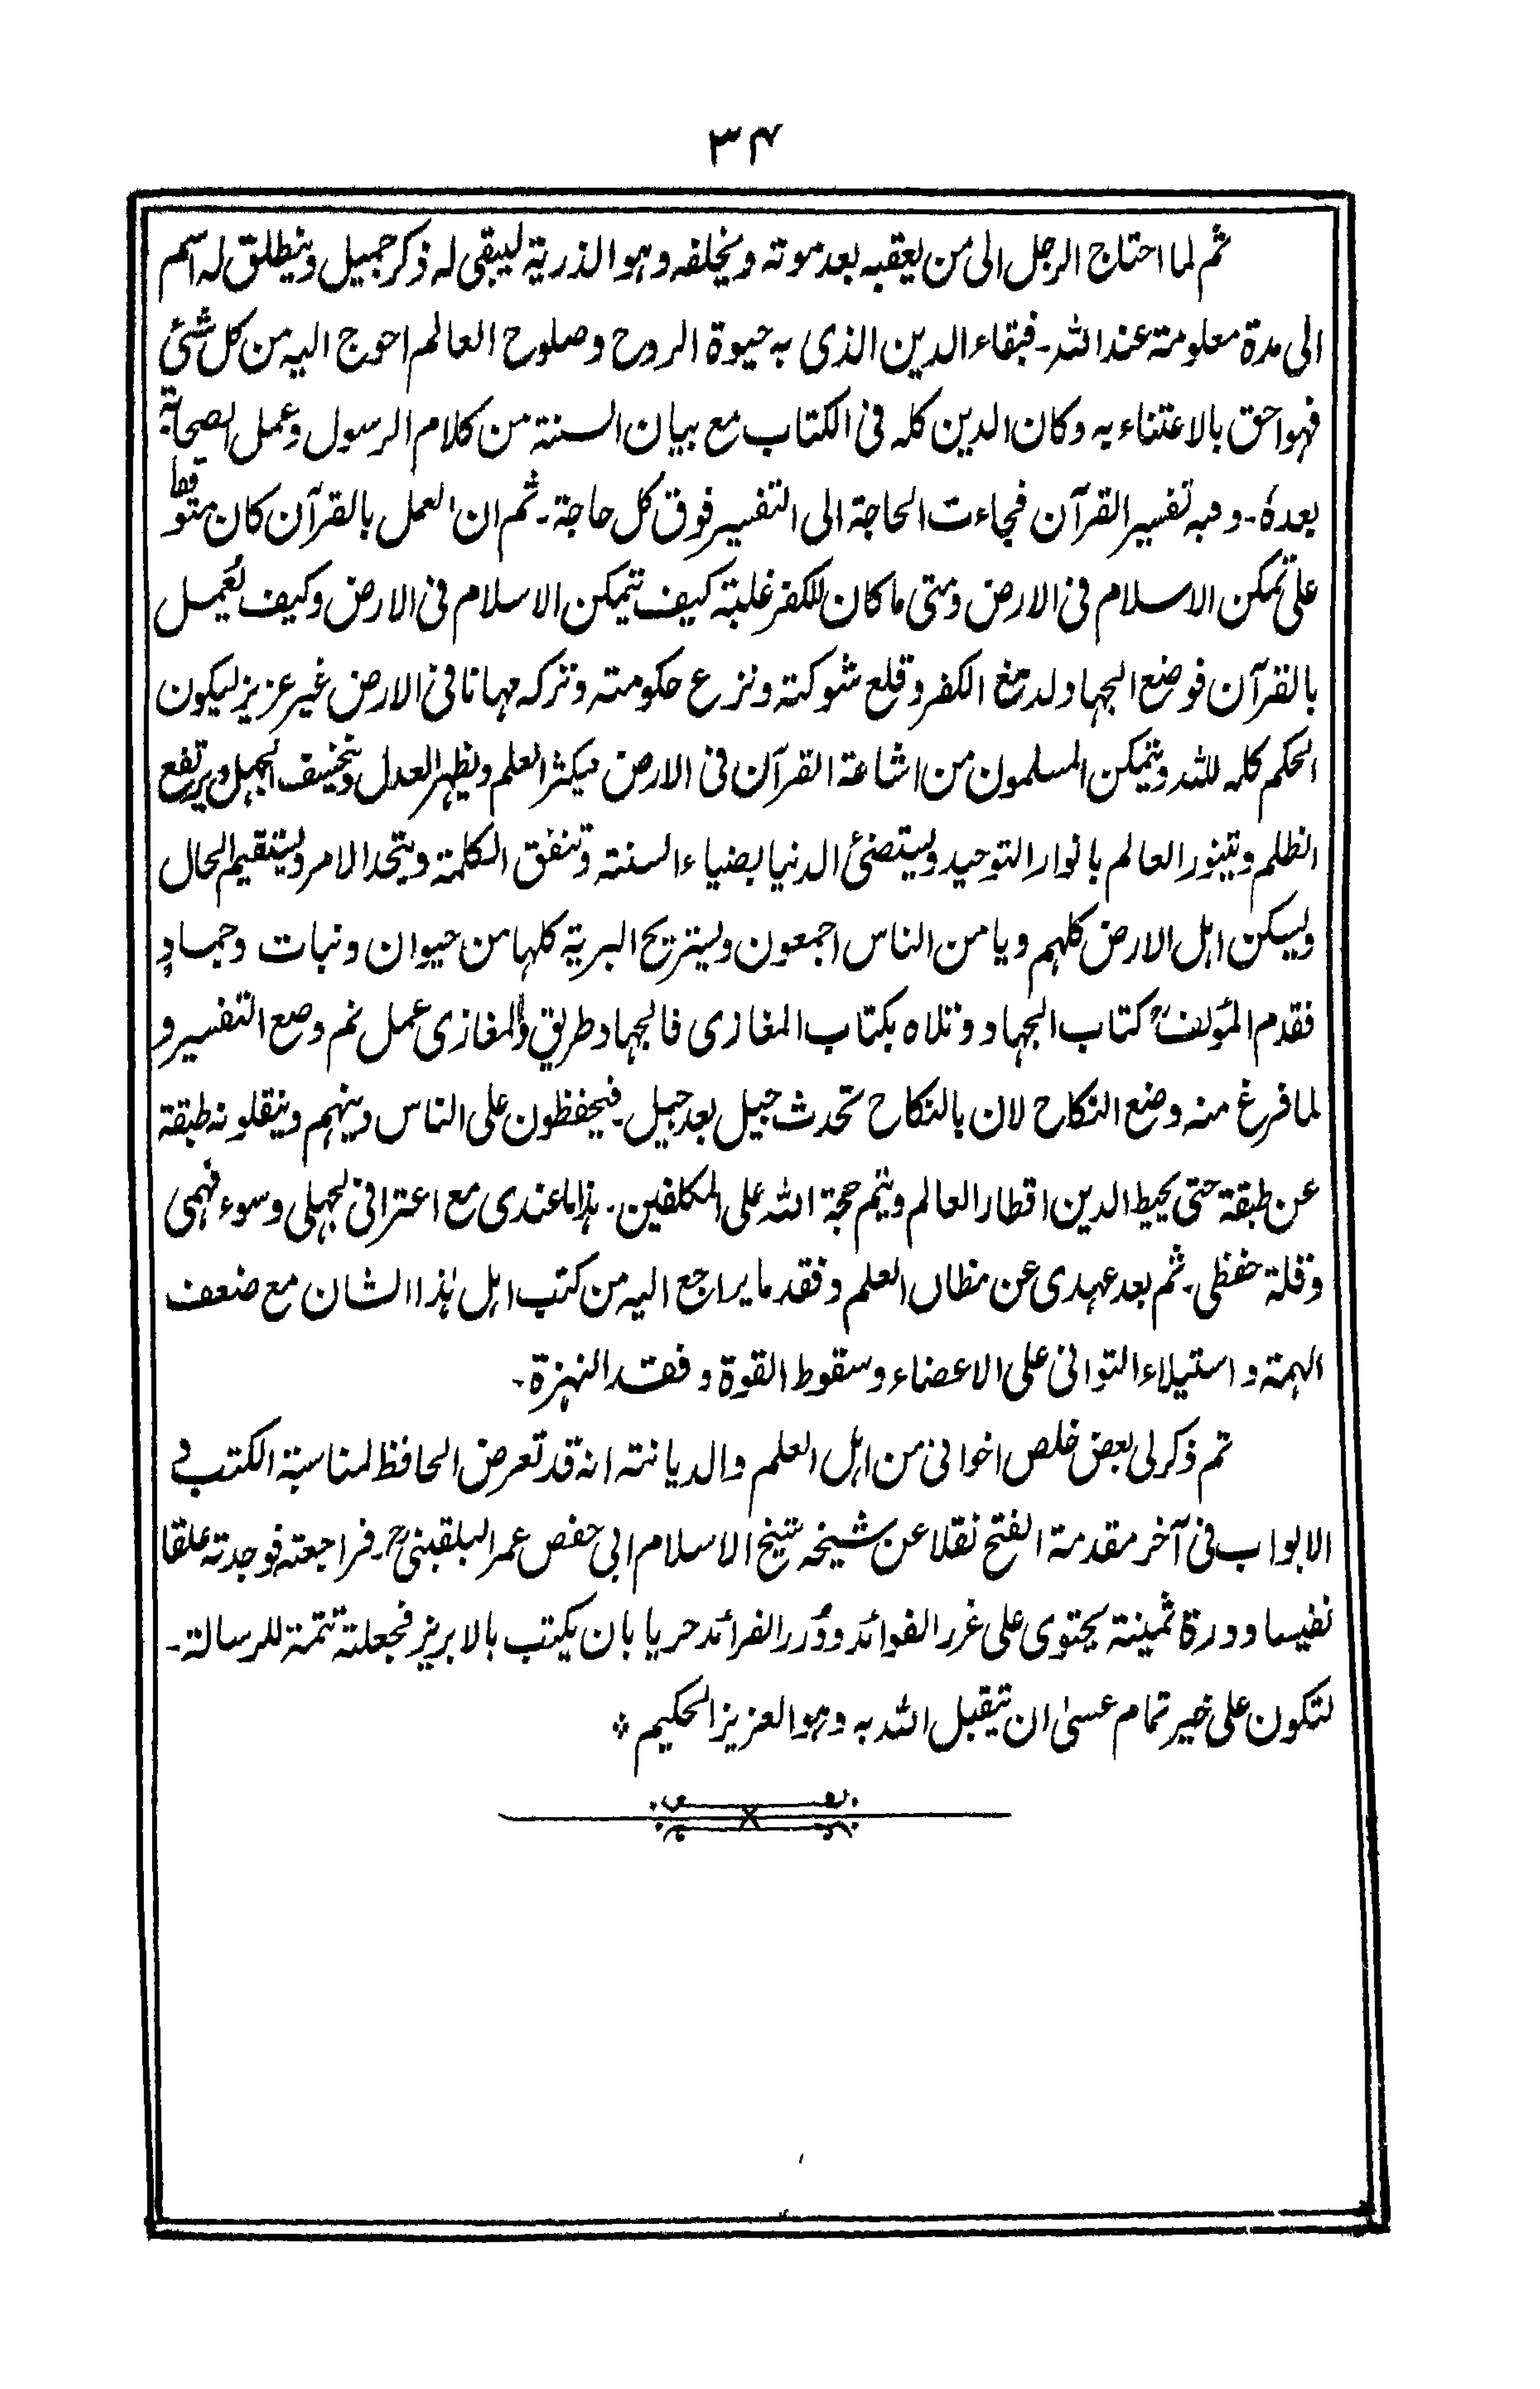 ٣٤
ثم لما احتاج الرجل الى من يعقبه بعد موته ويخلفه وهو الذرية ليبقى له ذكر جميل وينطلق له اسم
الى مدة معلومة عند الله۔ فبقاء الدين الذى به حيوة الروح وصلوح العالم احوج اليه من كل شئي
فهو احق بالاعتناء به وكان الدين كله فى الكتاب مع بيان السنة من كلام الرسول وعمل الصحابة
بعدهٗ۔ وهبه تفسير القرآن فجاءت الحاجة الى التفسير فوق كل حاجة۔ ثم ان العمل بالقرآن كان متوقفا
على تمكن الاسلام فى الارض ومتى ما كان للكفر غلبة كيف يتمكن الاسلام فى الارض وكيف يُعمل
بالقرآن فوضع الجهاد لدمغ الكفر وقلع شوكته ونزع حكومته وتركه مهانا فى الارض غير عزيز ليكون
الحكم كله لله ويتمكن المسلمون من اشاعة القرآن فى الارض فيكثر العلم ويظهر العدل ويخسف الجهل ويرتفع
الظلم ويتنور العالم بانوار التوحيد ويستضئ الدنيا بضياء السنة وتتفق الكلمة ويتحد الامر ويستقيم الحال
ويسكن اهل الارض كلهم ويامن الناس اجمعون ويستريح البرية كلها من حيوان ونبات وجمادٍ
فقدم المؤلفؒ كتاب الجهاد وتلاه بكتاب المغازى فالجهاد طريق والمغازى عمل ثم وضع التفسير و
لما فرغ منه وضع النكاح لان بالنكاح تحدث جيل بعد جيل۔ فيحفظون على الناس دينهم وينقلونه طبقة
عن طبقة حتى يحيط الدين اقطار العالم ويتم حجة الله على المكلفين۔ هذا ما عندى مع اعترافى لجهلى وسوء فهمى
وقلة حفظى۔ ثم بعد عهدى عن مظان العلم وفقد ما يراجع اليه من كتب اهل هٰذا الشان مع ضعف
الهمة و استيلاء التوانى على الاعضاء وسقوط القوة وفقد النهزة۔
ثم ذكر لى بعض خلص اخوانى من اهل العلم والديانة انه قد تعرض الحافظ لمناسبة الكتب و
الابواب فى آخر مقدمة الفتح نقلا عن شيخه شيخ الاسلام ابى حفص عمر البلقينىؒ۔ فراجعته فوجدته علقا
نفيسا ودرة ثمينة يحتوى على غرر الفوائد ودُرر الفرائد حريا بان يكتب بالابريز فجعلته تتمة للرسالة۔
لتكون على خير تمام عسىٰ ان يتقبل الله به وهو العزيز الحكيم ❊